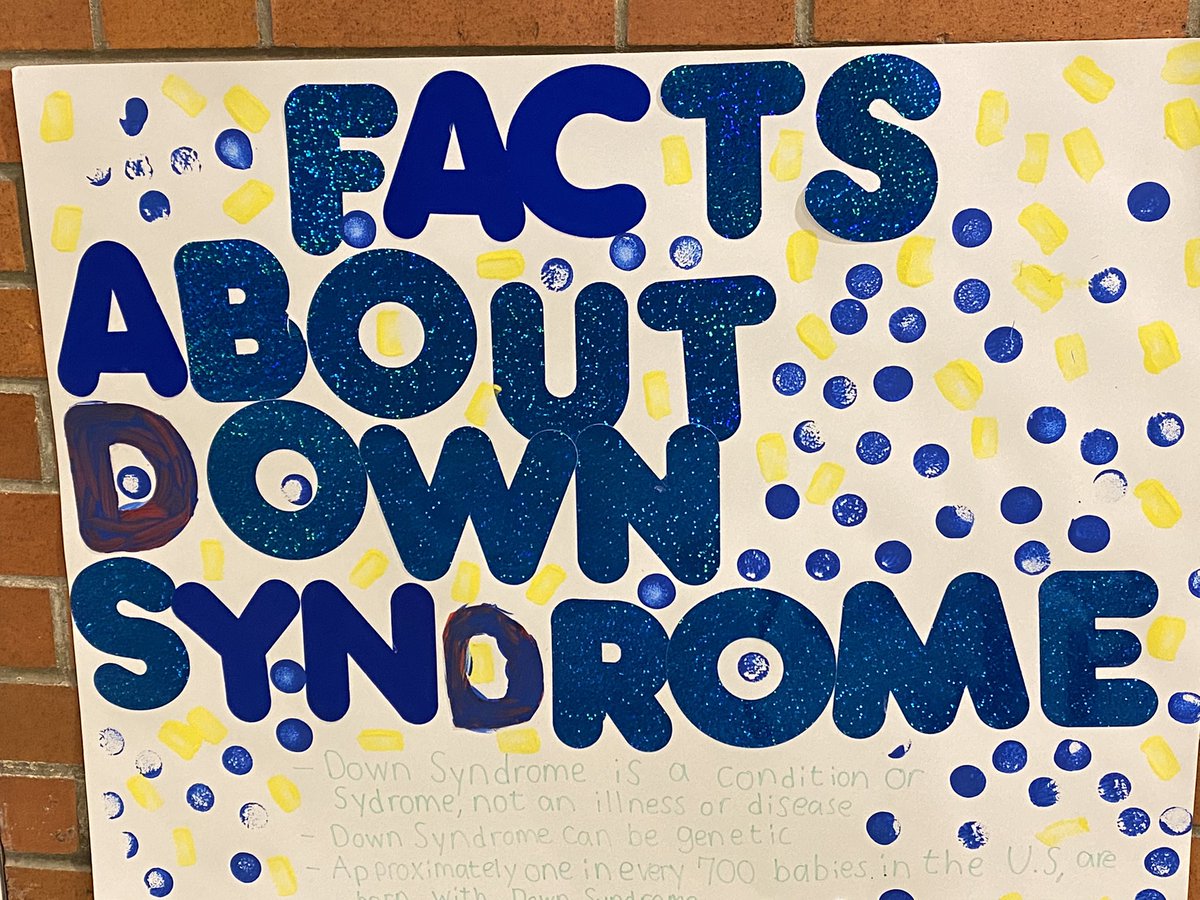 FACTS
ABOUT
DOWN
SYNDROME
- Down Syndrome is a condition or
Sydrome, not an illness or disease
- Down Syndrome can be genetic
- Approximately one in every 700 babies in the U.S, are
born with Down Syndrome